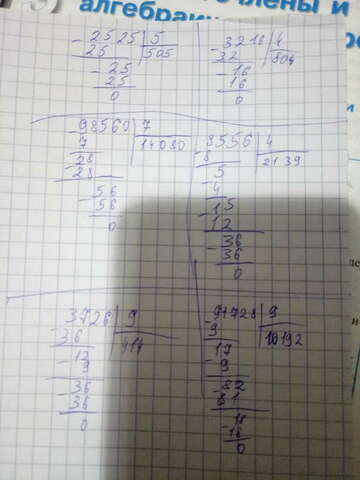 члены и
алгебраи
- 2525 | 5
25 | 505
- 25
25
0
- 3216 | 4
32 | 804
- 16
16
0
98560 | 7
7 | 14080
- 28
28
- 56
56
0
- 8556 | 4
8 | 2139
- 5
4
- 15
12
- 36
36
0
3726 | 9
36 | 414
- 12
9
- 36
36
0
- 91728 | 9
9 | 10192
- 17
9
- 82
81
- 18
18
0